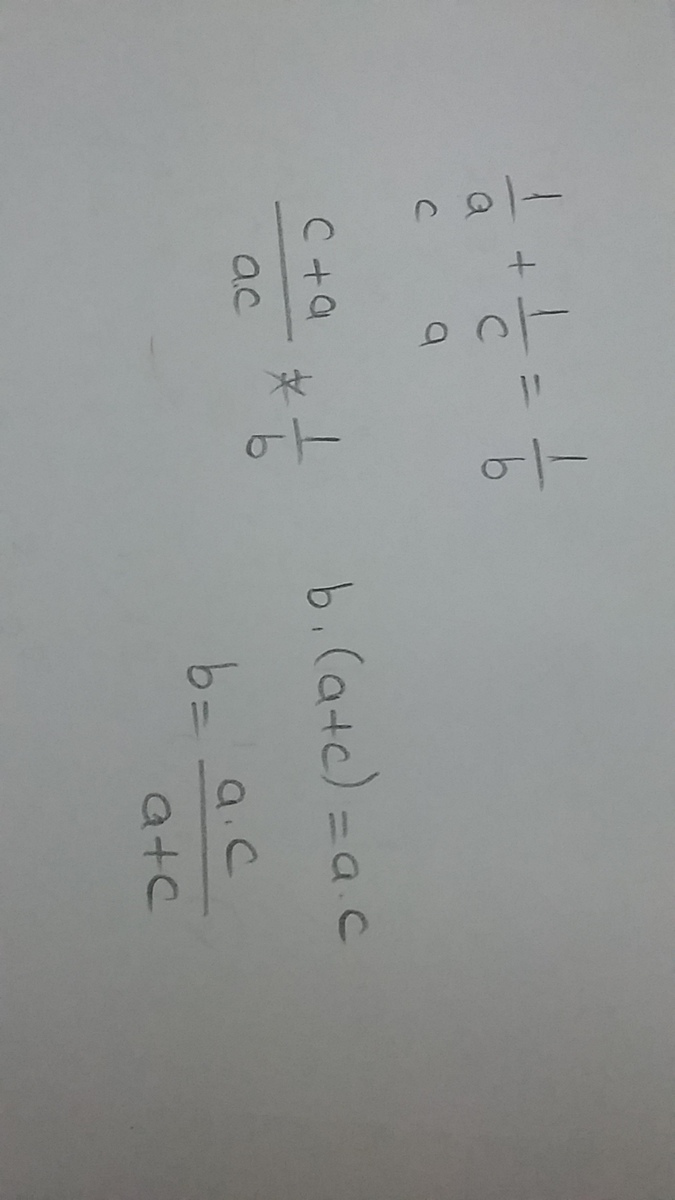 1/a + 1/c = 1/b
c a
c+a/ac * 1/b
b.(a+c) = a.c
b = a.c/a+c